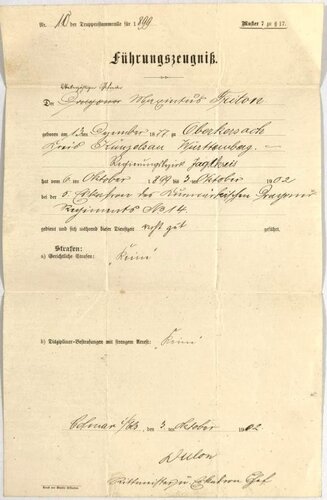 Nr. 10 der Truppenstammrolle für 1899
Muster 7 zu § 17.
Führungszeugniß.
Der Dragoner Magnus
geboren am ten Dezember 1877 zu Oberkessach
Kreis Künzelsau Württemberg.
Regierungsbezirk Jagstkreis
hat vom 6 ten Oktober 1899 bis 3 ten Oktober 1902
bei der 5. Eskadron des Kurmärkischen Dragoner
Regiments No 14.
gedient und sich während dieser Dienstzeit recht gut geführt.
Strafen:
a) Gerichtliche Strafen: Keine
b) Disziplinar-Bestrafungen mit strengem Arrest: Keine
Colmar i/Els, den 3 ten Oktober 1902
Rittmeister u. Eskadron Chef